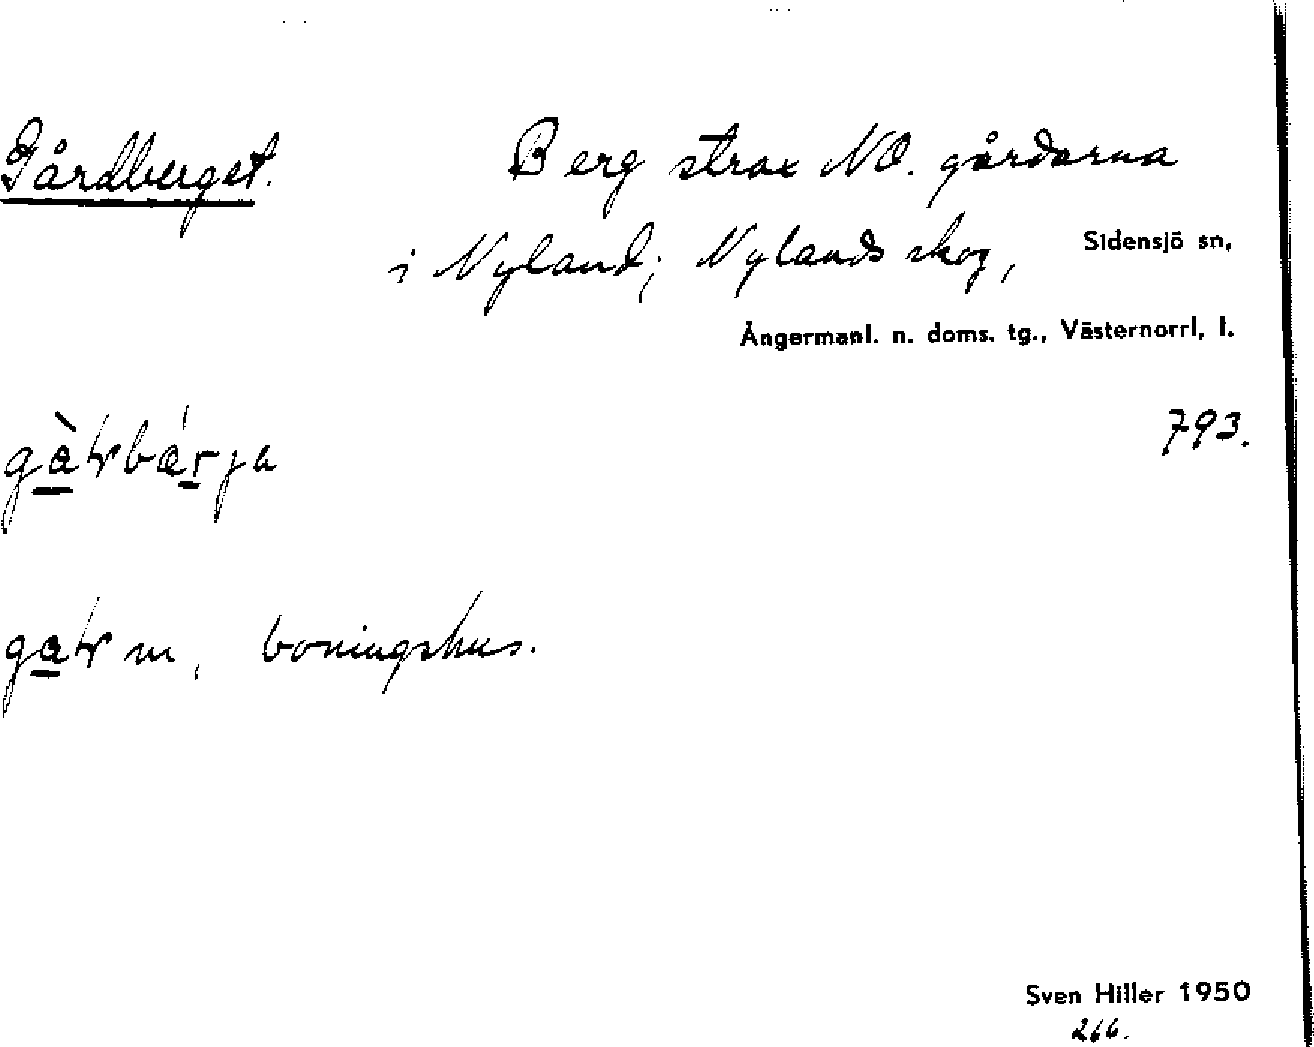 Gårdberget. Berg strax NO. gårdarna
i Nyland; Nylands skog, Sidensjö sn,
Ångermanl. n. doms. tg., Västernorrl, l.
793.
m, boningshus.
Sven Hiller 1950
266.